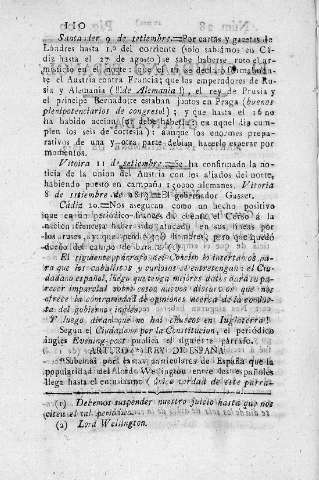 110
Santander 9 de setiembre.=Por cartas y gacetas de
Londres hasta 1.º del corriente (solo sabíamos en Cá-
diz hasta el 27 de agosto) se sabe haberse roto el ar-
misticio en el norte: que el 11 se declaró formalmente
el Austria contra Francia; que los emperadores de Ru-
sia y Alemania (!!! de Alemania!), el rey de Prusia y
el príncipe Bernadotte estaban juntos en Praga (buenos
plenipotenciarios de congreso!); y que hasta el 16 no
ha habido accion
plen los seis de cortesía): aunque los enormes prepa-
rativos de una y otra parte debian hacerlo esperar por
momentos.
Vitoria 11 de setiembre.=Se ha confirmado la no-
ticia de la union del Austria con los aliados del norte,
habiendo puesto en campaña 150000 alemanes. Vitoria
8 de setiembre de 1813.=El gobernador Gasset.
Cádiz 20.=Nos aseguran como un hecho positivo
que en un periódico frances da cuenta el Corso á la
nacion francesa haber sido atacado en sus líneas por
los rusos, y que perdió hombres; pero que quedó
dueño del campo de batalla (1).
El siguiente párrafo del Conciso lo insertamos pa-
ra que los caballistas y curiosos se entretengan: el Ciu-
dadano español, luego que tenga mejores datos dará su pa-
recer imparcial sobre estos nuevos disturbios que nos
ofrece la contrariedad de opiniones acerca de la conduc-
ta del gobierno inglés.
Y luego dirán que no hai chuscos en Inglaterra!
Segun el Ciudadano por la Constitucion, el periódico
ingles Evening-post publica el siguiente párrafo.
ARTURO (2) REY DE ESPAÑA.
"Sabemos por cartas particulares de España que la
popularidad del Lord Wellington entre los españoles
llega hasta el entusiasmo (única verdad de este párra-
(1) Debemos suspender nuestro juicio hasta que nos
citen el tal periódico.
(2) Lord Wellington.